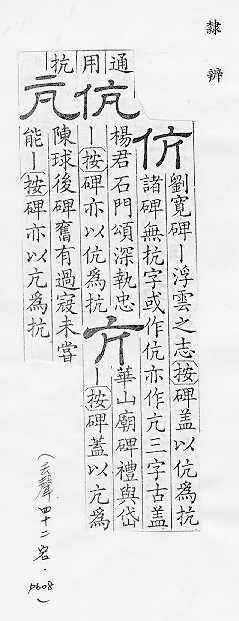 隸辨
伉
劉寬碑|浮雲之志按碑盖以伉為抗
諸碑無抗字或作伉亦作亢三字古盖
通
用
伉
楊君石門頌深執忠
|按碑亦以伉為抗
亢
華山廟碑禮與岱
|按碑蓋以亢為
抗
亢
陳球後碑奮有過寇未嘗
能|按碑亦以亢為抗
(去聲 四十二宕．p608)